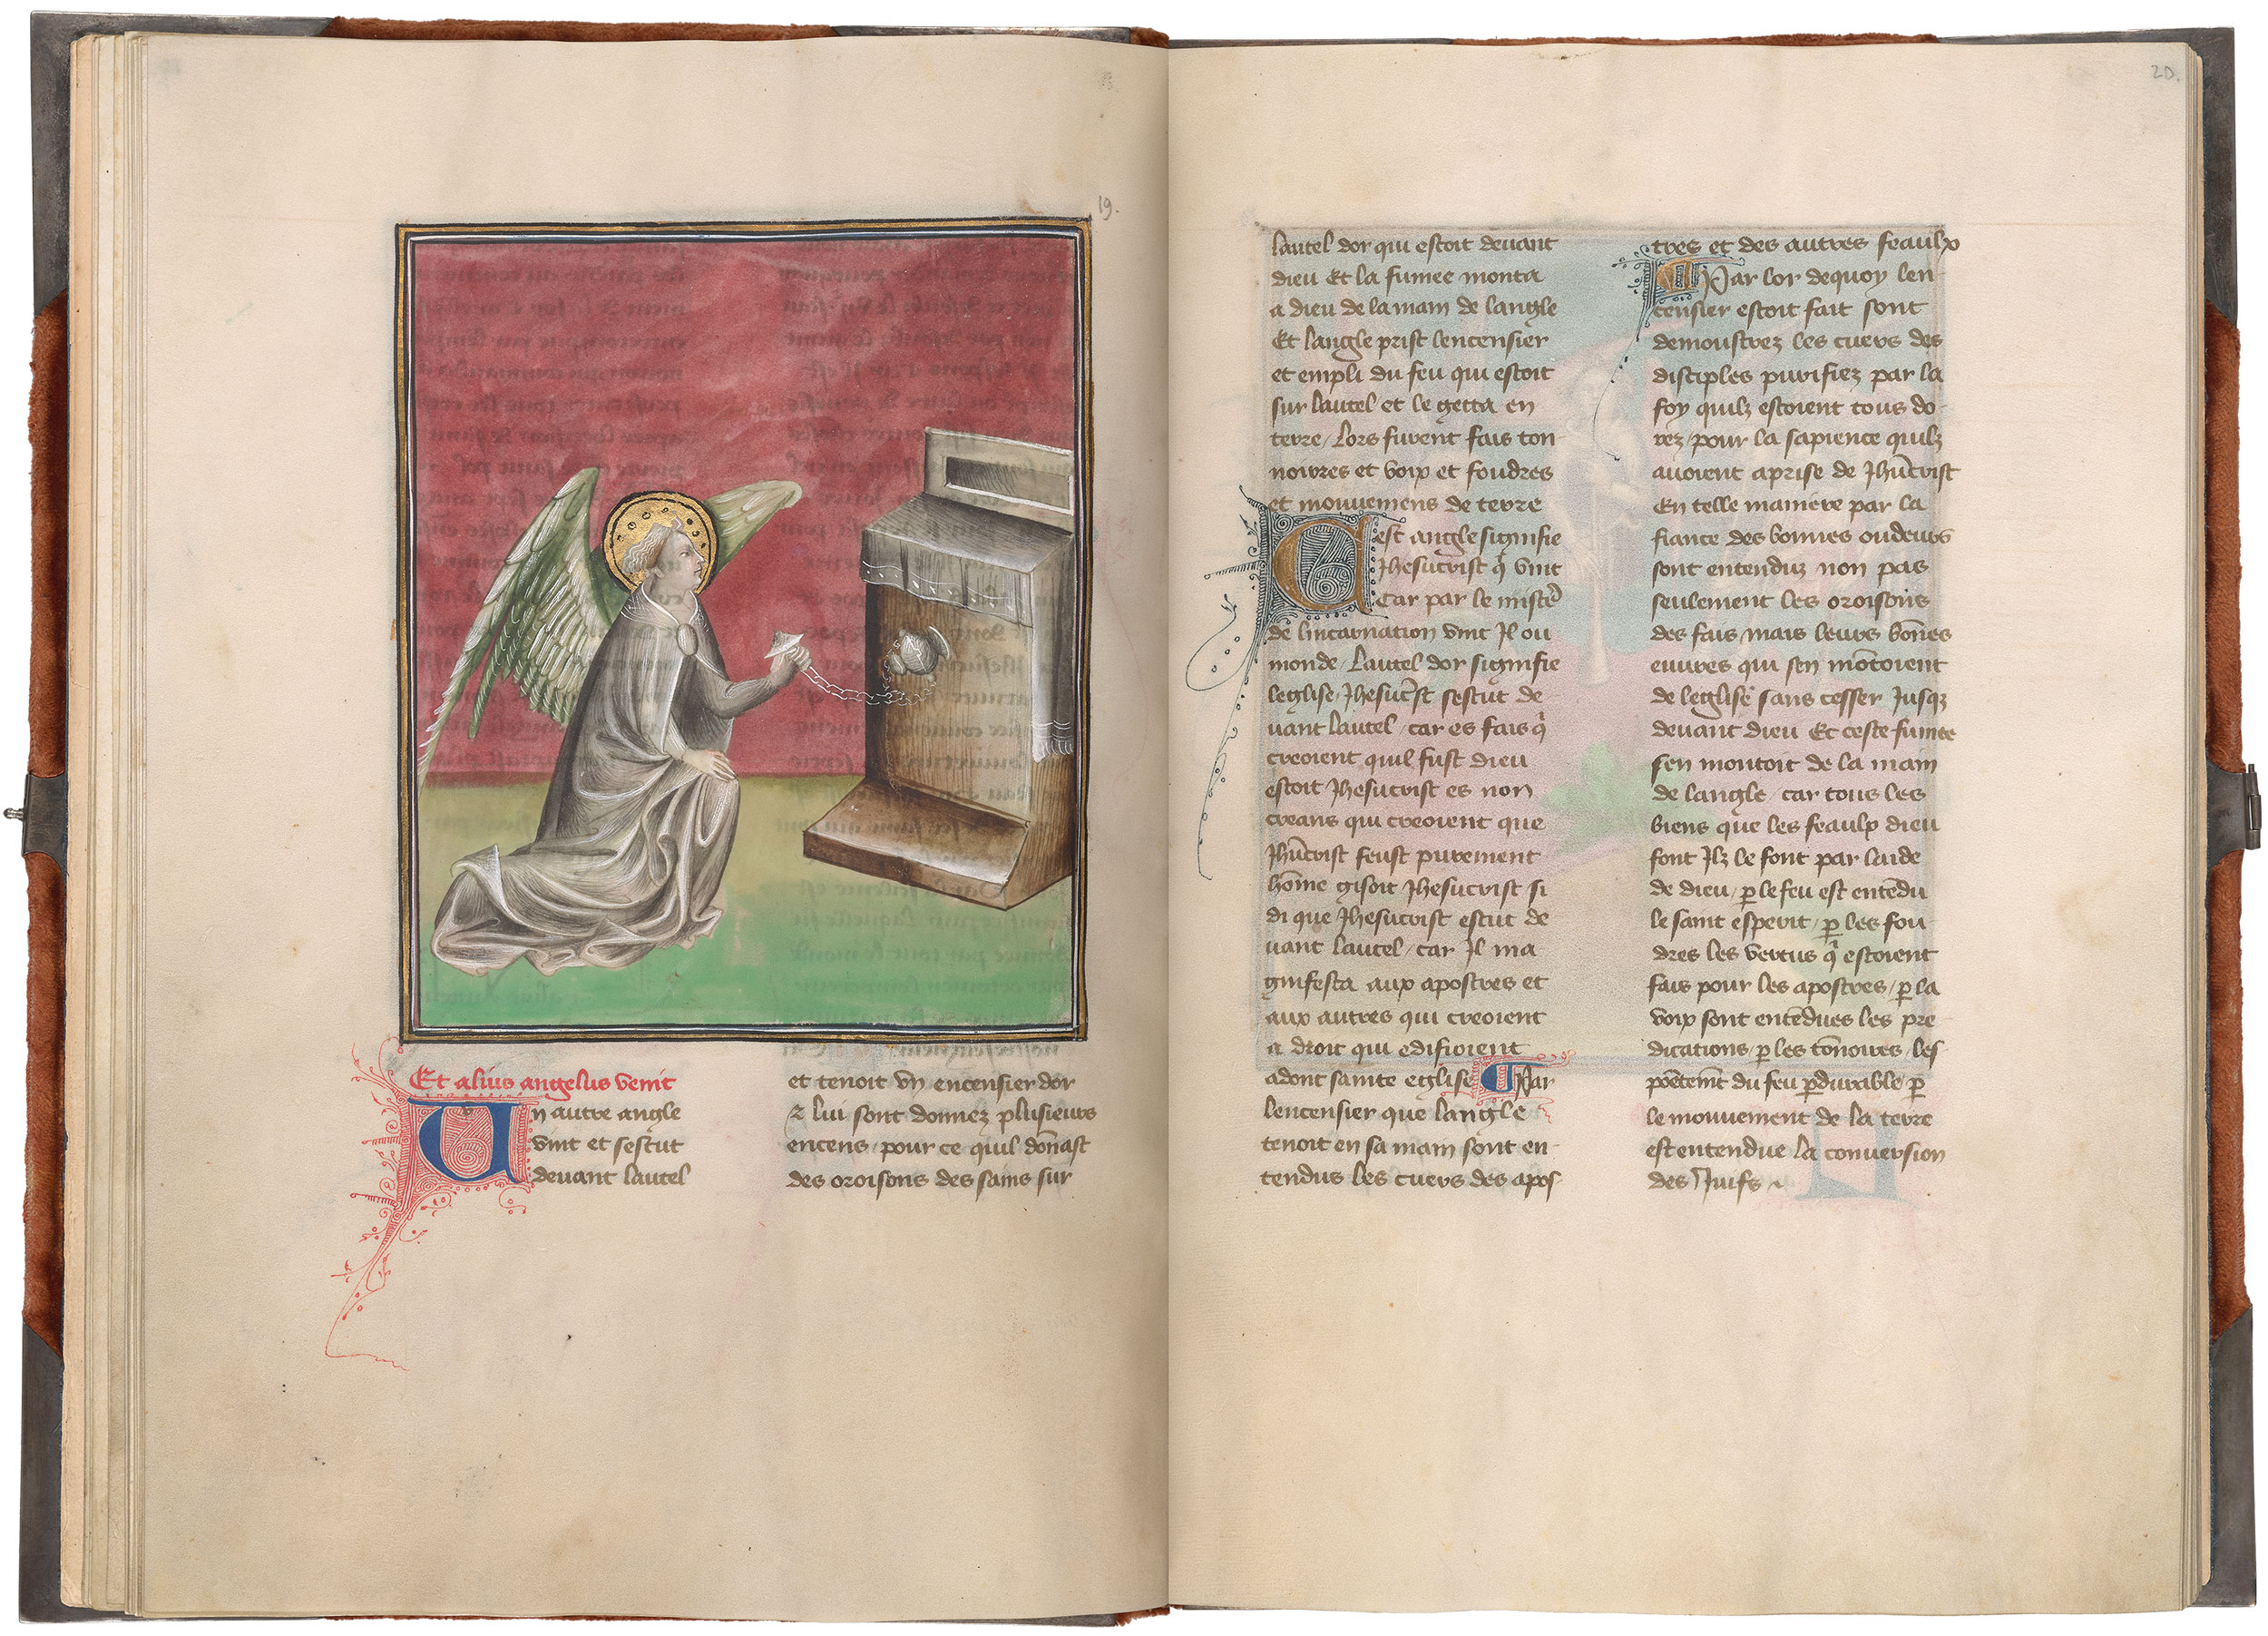 19.
Et alius angelus venit
Un autre angle
vint et sestut
devant lautel
et tenoit vn encensier dor
⁊ lui sont donnez plusieurs
encens / pour ce quil dōnast
des oroisons des sains sur
20.
lautel dor qui estoit deuant
dieu Et la fumee monta
a dieu de la main de langle
Et langle prist lencensier
et empli du feu qui estoit
sur lautel et le getta en
terre / Lors furent fais ton-
noirres et voix et foudres
et mouuemens de terre
Cest angle signifie
Jhesucrist q̄ vint
Car par le mistē
de lincarnation vint Il ou
monde / Lautel dor signifie
leglise / Jhesuc̄st sestut de
uant lautel / car es fais q̄
creoient quil fust dieu
estoit Jhesucrist es non
creans qui creoient que
Jhūcrist feust purement
hōme gisoit Jhesucrist si
di que Jhesucrist estut de
uant lautel / car Il ma
gnifesta aux apostres et
aux autres qui creoient
a droit qui edifioient
adont sainte eglise ¶ Par
lencensier que langle
tenoit en sa main sont en-
tendus les cuers des apos
tres et des autres feaulx
¶ Par lor dequoy len-
censier estoit fait sont
demoustrez les cuers des
disciples purifiez par la
foy quilz estoient tous do-
rez / pour la sapience quilz
auoient aprise de Jhūcrist
En telle maniere par la
fiance des bonnes oudeurs
sont entenduz non pas
seulement les oroisons
des fais / mais leurs bōnes
euures qui sen mōtoient
de leglise sans cesser Jusqz
deuant dieu Et ceste fumee
sen montoit de la main
de langle / car tous les
biens que les feaulx dieu
font Ilz le font par laide
de dieu / ꝑ le feu est entēdu
le saint esperit / ꝑ les fou-
dres les vertus q̄ estoient
fais pour les apostres / ꝑ la
voix sont entēdues les pre-
dications / ꝑ les tōnoires / les
du feu ꝑdurable / ꝑ
le mouuement de la terre
est entendue la conuersion
des Juifs ~